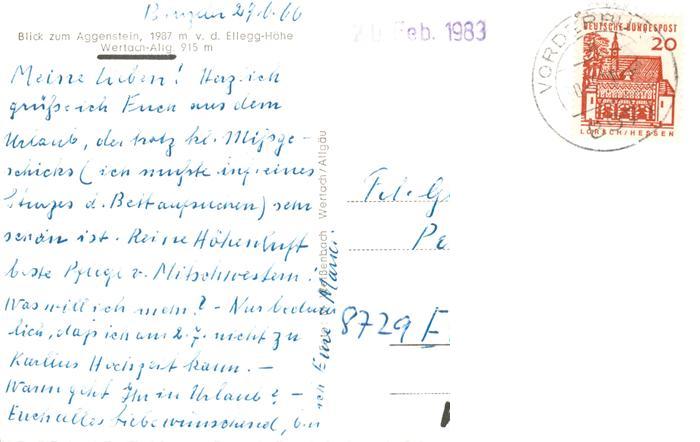 29.6.66
Blick zum Aggenstein, 1987 m v. d. Ellegg-Höhe
Wertach-Allg. 915 m
Meine Lieben! Herzlich
grüße ich Euch aus dem
Urlaub, der trotz kl. Mißge-
schicks (ich mußte inf. eines
Sturzes d. Bett aufsuchen) sehr
schön ist. Reine Höhenluft
beste Pflege v. Mitschwestern.
Was will ich mehr? - Nur bedauer
lich, daß ich am 2.7. nicht zu
Karlius Hochzeit kann. -
Wann geht Ihr in Urlaub? -
Euch alles Liebe wünschend, bin
ich Eure
Wertach/Allgäu
20. Feb. 1983
DEUTSCHE BUNDESPOST
20
LORSCH/HESSEN
VORDERBU
Fa. G
Pe
8729 E